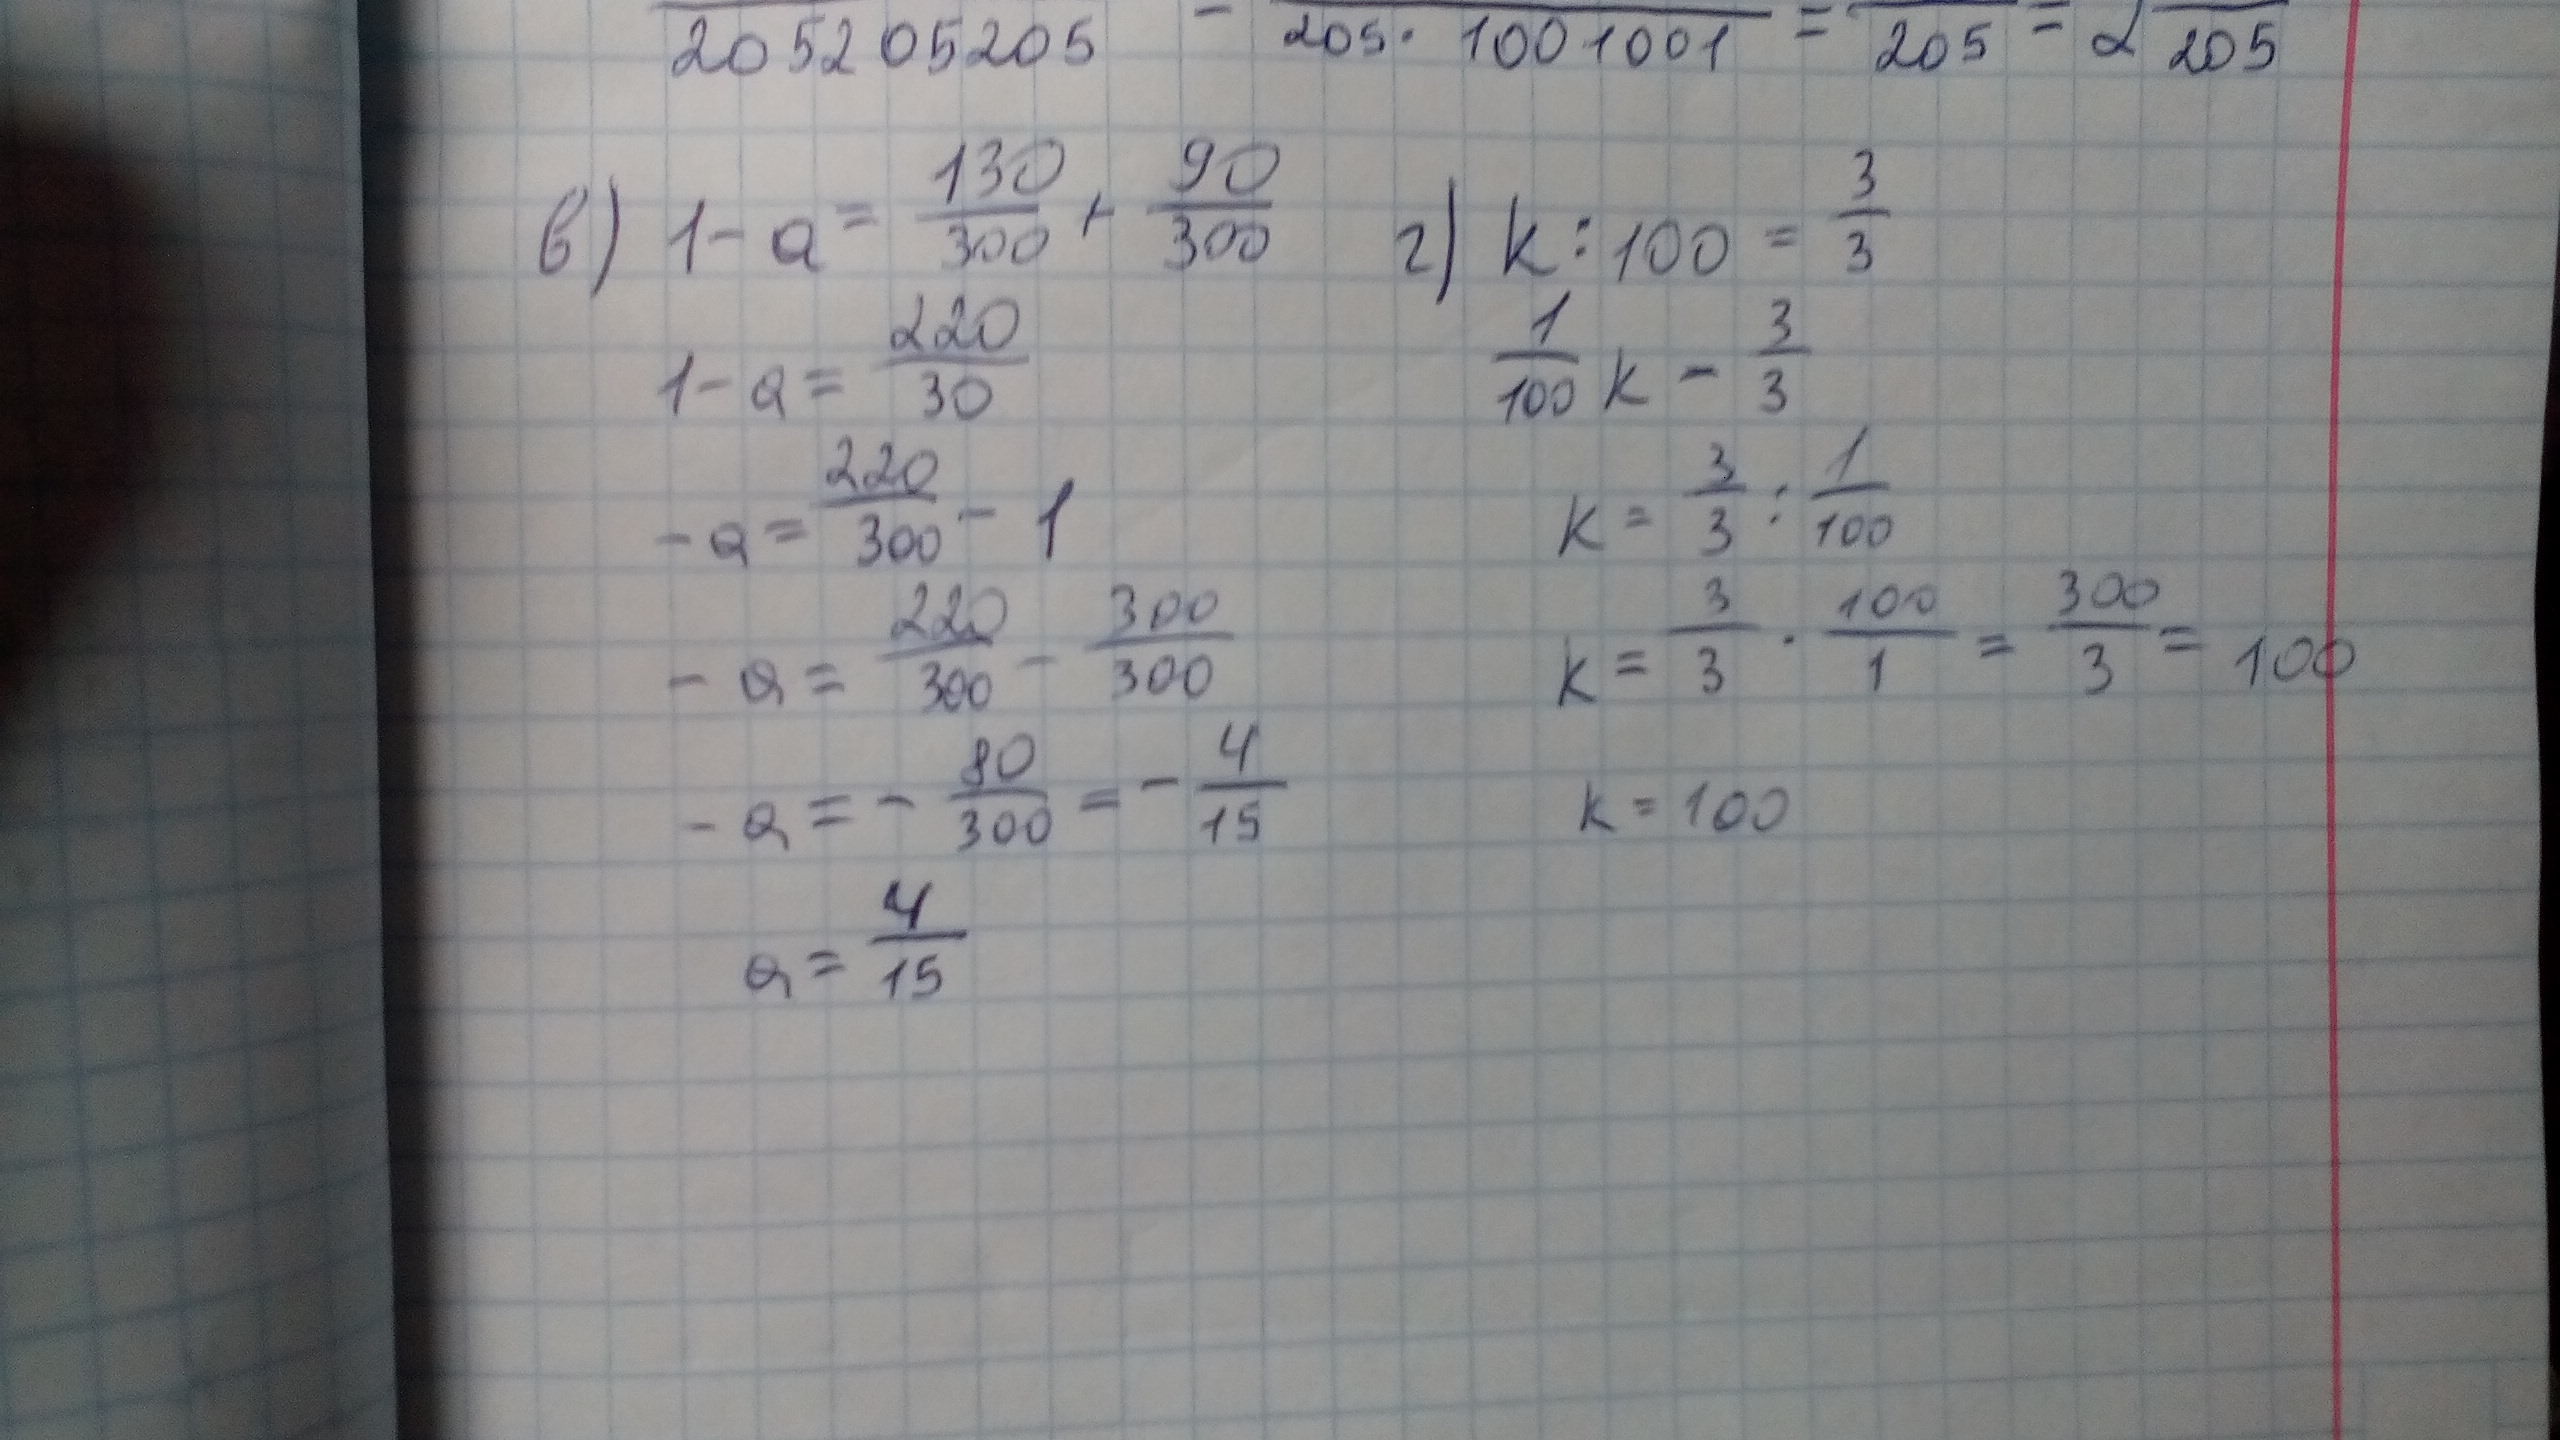 205205205 - 205·1001001 = 205 = 2 205
в) 1-a = 130/300 + 90/300
1-a = 220/30
-a = 220/300 - 1
-a = 220/300 - 300/300
-a = - 80/300 = - 4/15
a = 4/15
г) k : 100 = 3/3
1/100 k - 3/3
k = 3/3 : 1/100
k = 3/3 · 100/1 = 300/3 = 100
k = 100